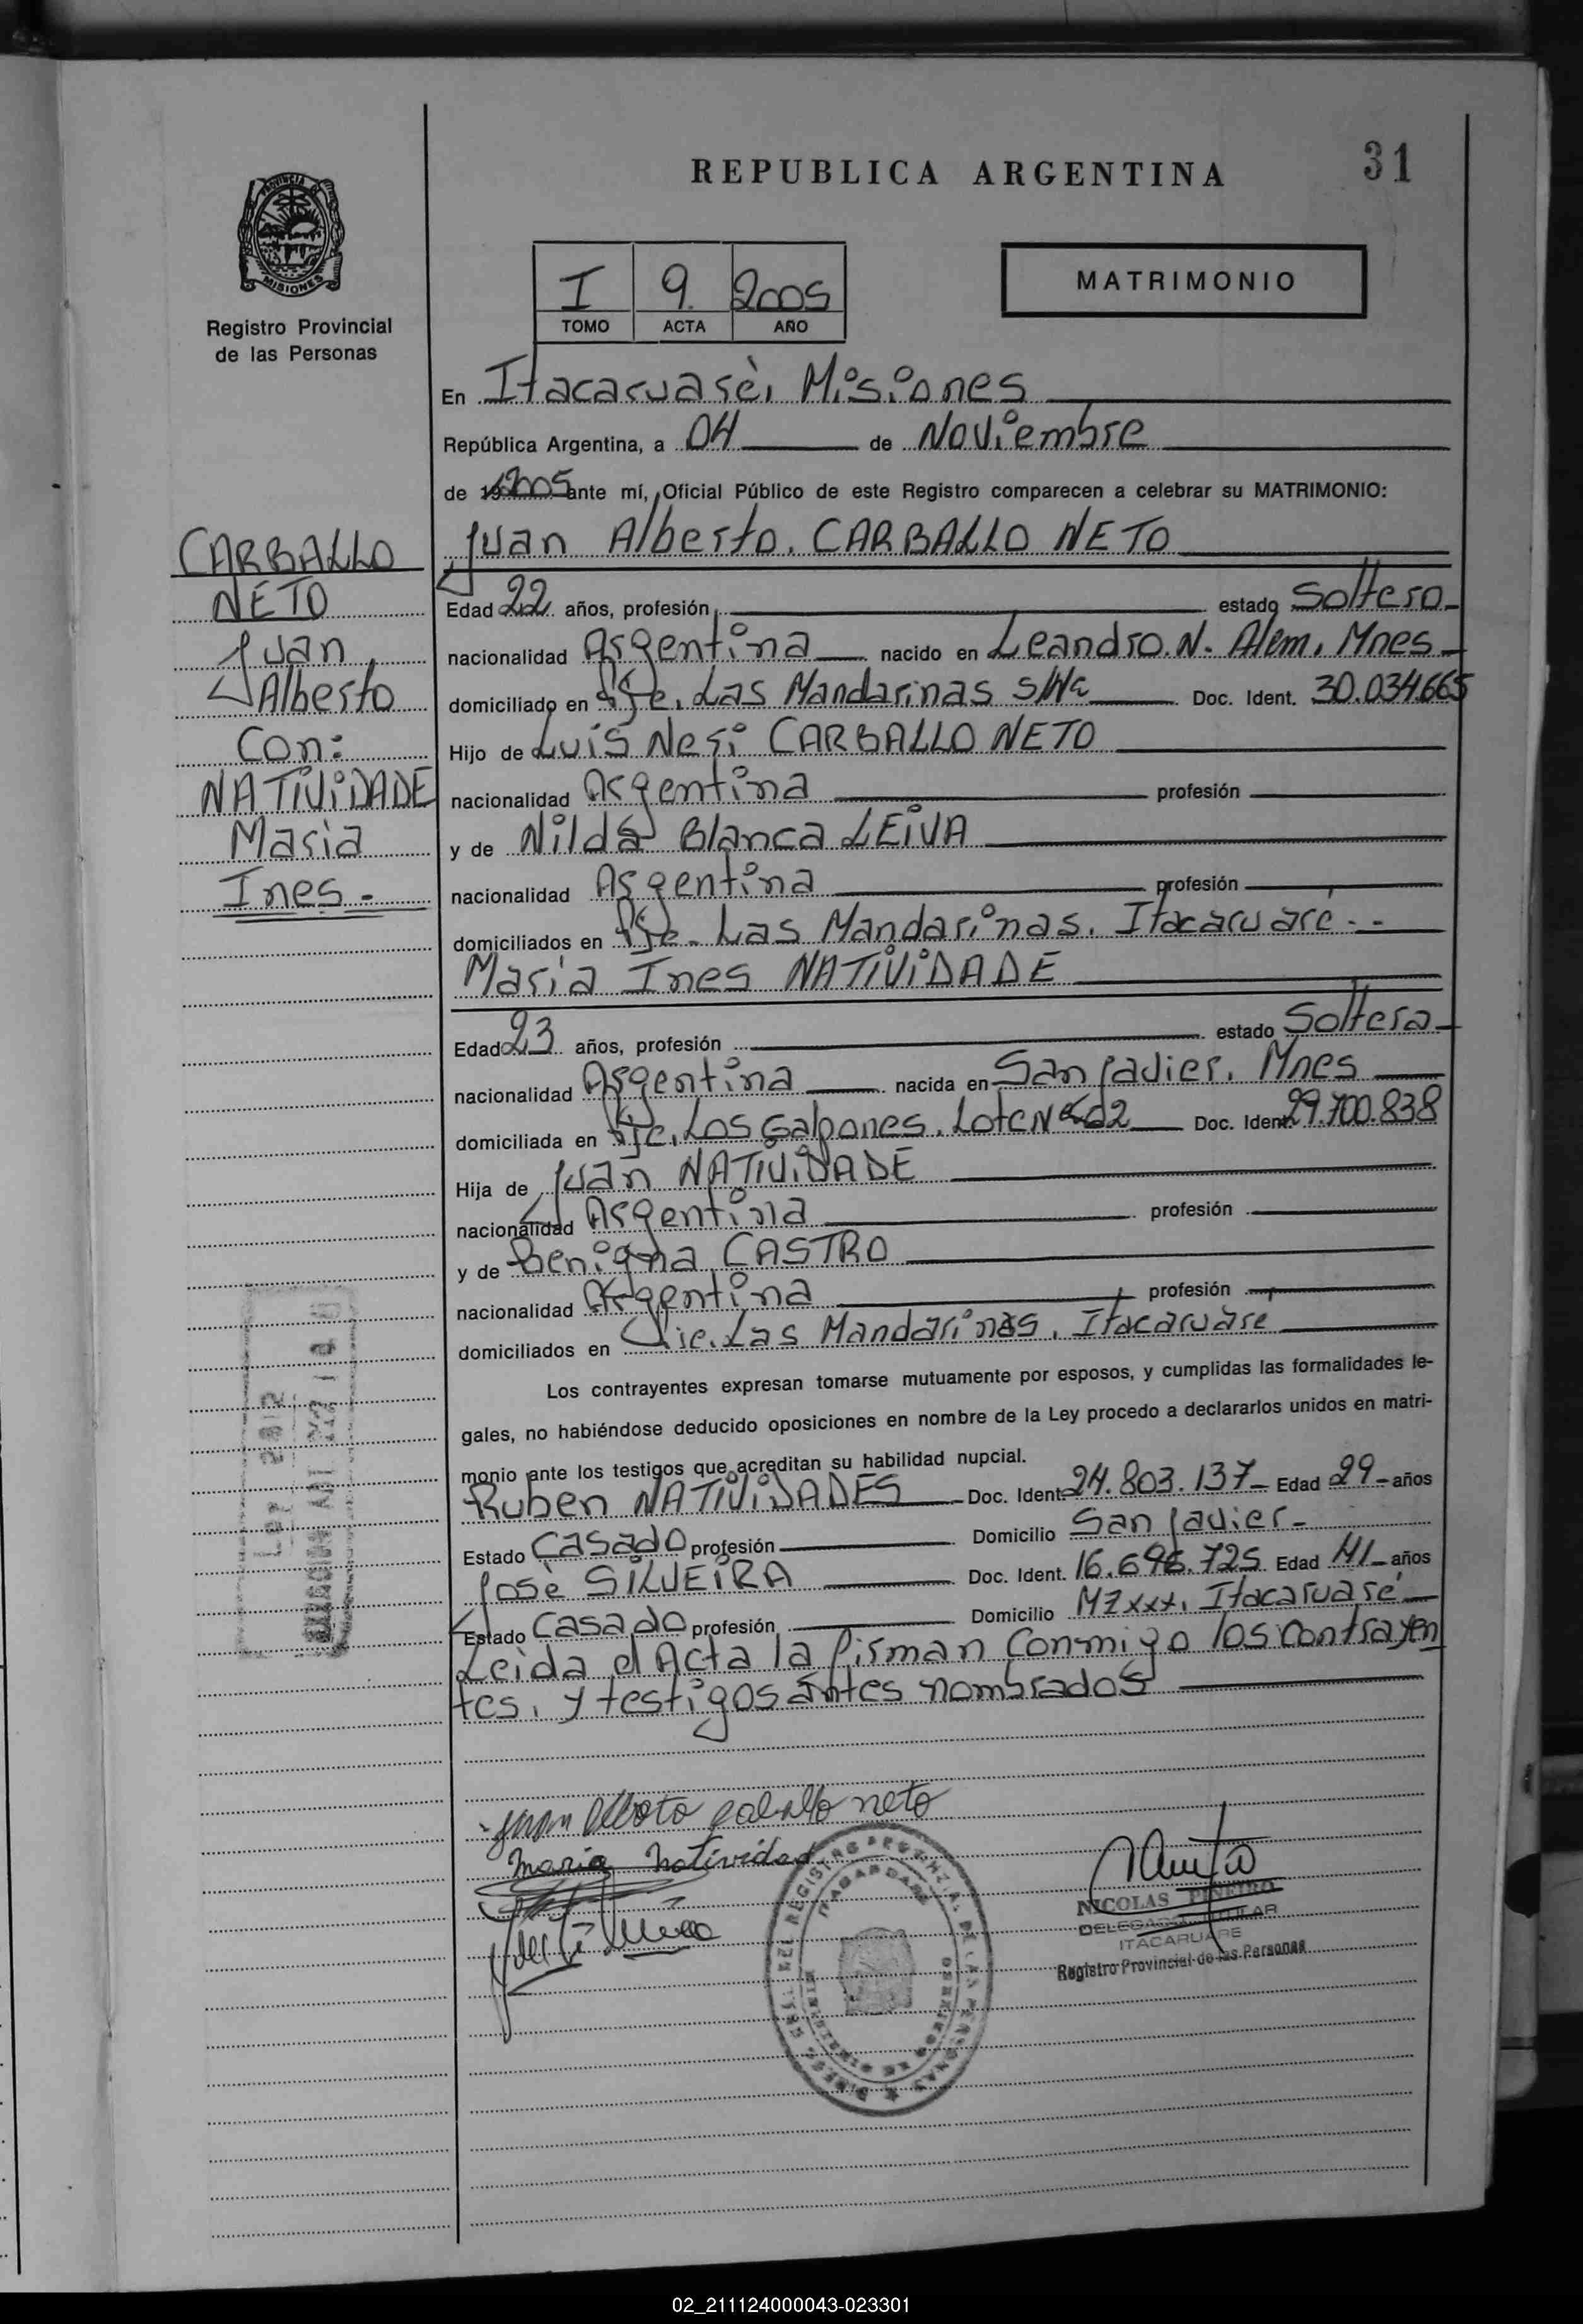 REPUBLICA ARGENTINA
31
PROVINCIA DE
MISIONES
Registro Provincial
de las Personas
I 9. 2005
TOMO ACTA AÑO
MATRIMONIO
En Itacaruaré, Misiones
República Argentina, a 04 de Noviembre
de 2005 ante mí, Oficial Público de este Registro comparecen a celebrar su MATRIMONIO:
Juan Alberto. CARBALLO NETO
CARBALLO
NETO
Juan
Alberto
Con:
NATIVIDADE
Maria
Ines.-
Edad 22 años, profesión estado Soltero
nacionalidad Argentina nacido en Leandro. N. Alem, Mnes
domiciliado en Pje. Las Mandarinas Doc. Ident. 30.034.665
Hijo de Luis Neri CARBALLO NETO
nacionalidad Argentina profesión
y de Nilda Blanca LEIVA
nacionalidad Argentina profesión
domiciliados en Pje. Las Mandarinas. Itacaruaré.-
Maria Ines NATIVIDADE
Edad 23 años, profesión estado Soltera
nacionalidad Argentina nacida en San Javier. Mnes
domiciliada en Pje. Los Galpones. Lote Doc. Ident. 29.700.838
Hija de Juan NATIVIDADE
nacionalidad Argentina profesión
y de Benigna CASTRO
nacionalidad Argentina profesión
domiciliados en Pje. Las Mandarinas, Itacaruare
Los contrayentes expresan tomarse mutuamente por esposos, y cumplidas las formalidades le-
gales, no habiéndose deducido oposiciones en nombre de la Ley procedo a declararlos unidos en matri-
monio ante los testigos que acreditan su habilidad nupcial.
Ruben NATIVIDADES Doc. Ident. 24.803.137- Edad 29 años
Estado Casado profesión Domicilio San Javier-
José SILVEIRA Doc. Ident. 16.696.725 Edad 41 años
Estado Casado profesión Domicilio MZxxx, Itacaruaré
Leida el Acta la firman conmigo los contrayen
tes, y testigos antes nombrados
Juan Alberto caballo neto
maria natividad
NICOLAS PIÑEIRO
DELEGADO TITULAR
ITACARUARE
Registro Provincial de las Personas
02_211124000043-023301